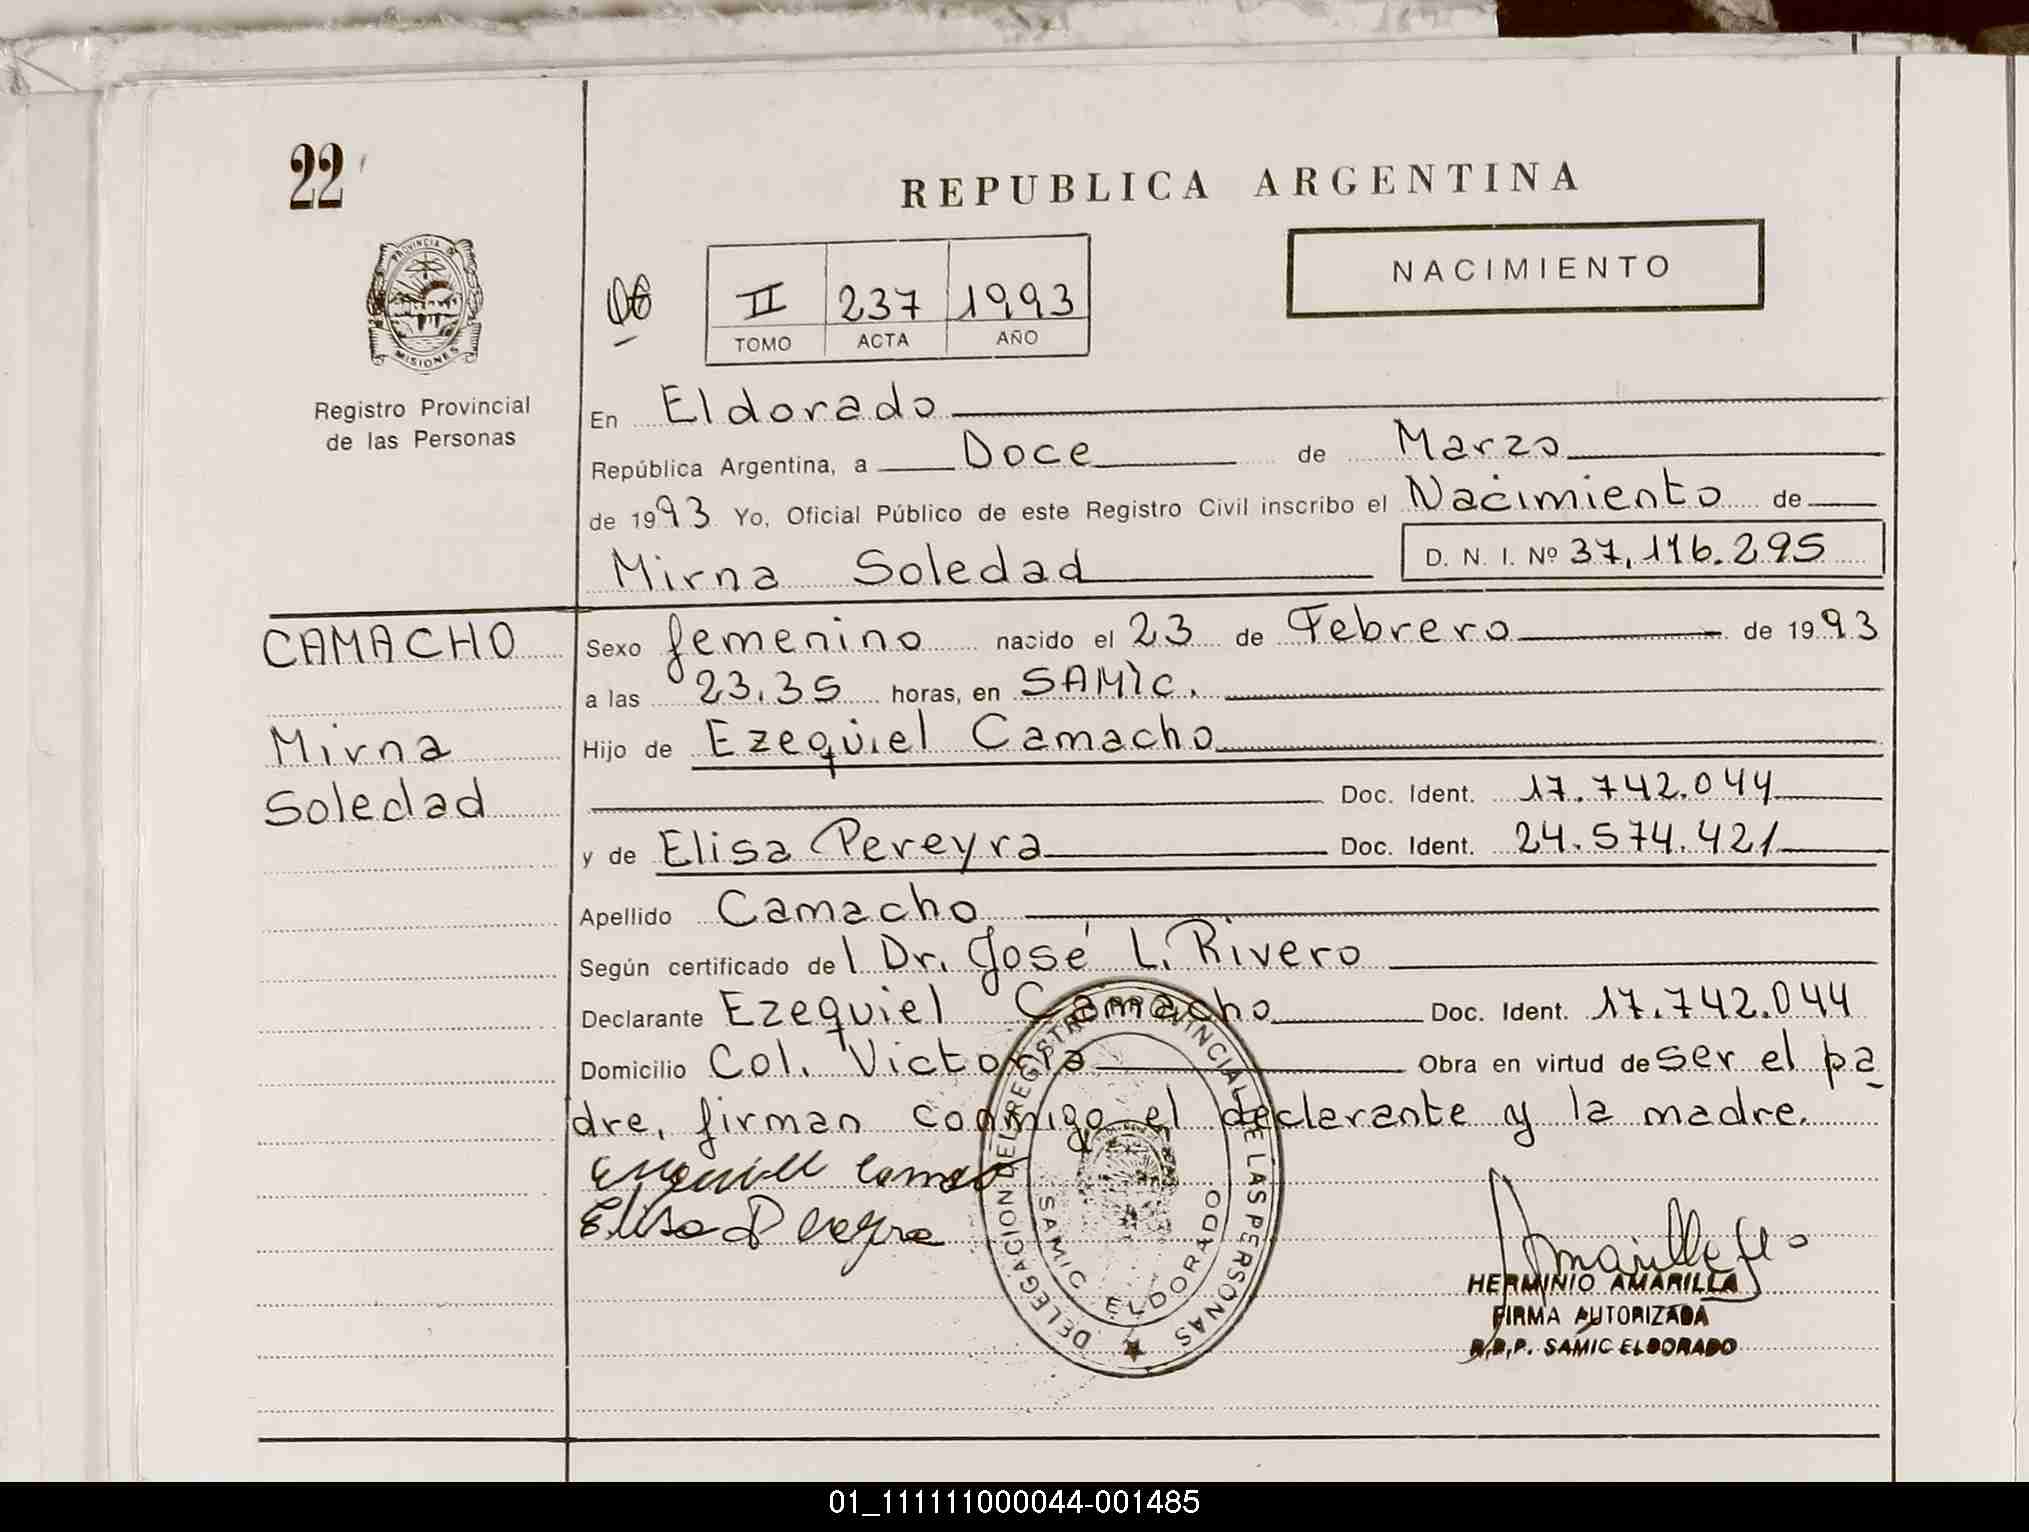 22
REPUBLICA ARGENTINA
PROVINCIA DE
MISIONES
Registro Provincial
de las Personas
06
II 237 1993
TOMO ACTA AÑO
NACIMIENTO
En Eldorado
República Argentina, a Doce de Marzo
de 1993 Yo, Oficial Público de este Registro Civil inscribo el Nacimiento de
Mirna Soledad D. N. I. Nº 37,116.295
CAMACHO
Mirna
Soledad
Sexo femenino nacido el 23 de Febrero de 1993
a las 23.35 horas, en SAMIC.
Hijo de Ezequiel Camacho
Doc. Ident. 17.742.044
y de Elisa Pereyra Doc. Ident. 24.574.421
Apellido Camacho
Según certificado del Dr. José L. Rivero
Declarante Ezequiel Camacho Doc. Ident. 17.742.044
Domicilio Col. Victoria Obra en virtud de ser el pa
dre, firman conmigo el declarante y la madre.
Elisa Pereyra
DELEGACION DEL REGISTRO PROVINCIAL DE LAS PERSONAS
SAMIC ELDORADO
HERMINIO AMARILLA
FIRMA AUTORIZADA
R.P.P. SAMIC ELDORADO
01_111111000044-001485